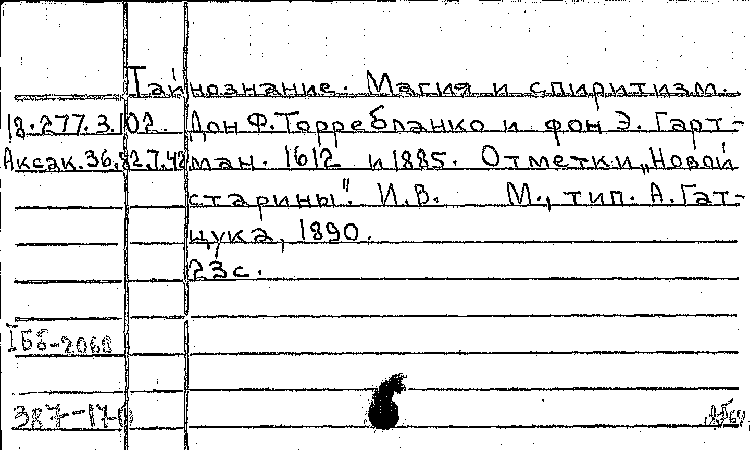 Тайнознание. Магия и спиритизм.
18.277.3.102. Дон Ф. Торребланко и фон Э. Гарт-
Аксак. 36.82.7.42 ман. 1612 и 1885. Отметки „Новой
старины". И.В. М., тип. А. Гат-
цука, 1890.
23 с.
IББ-2060
387-170